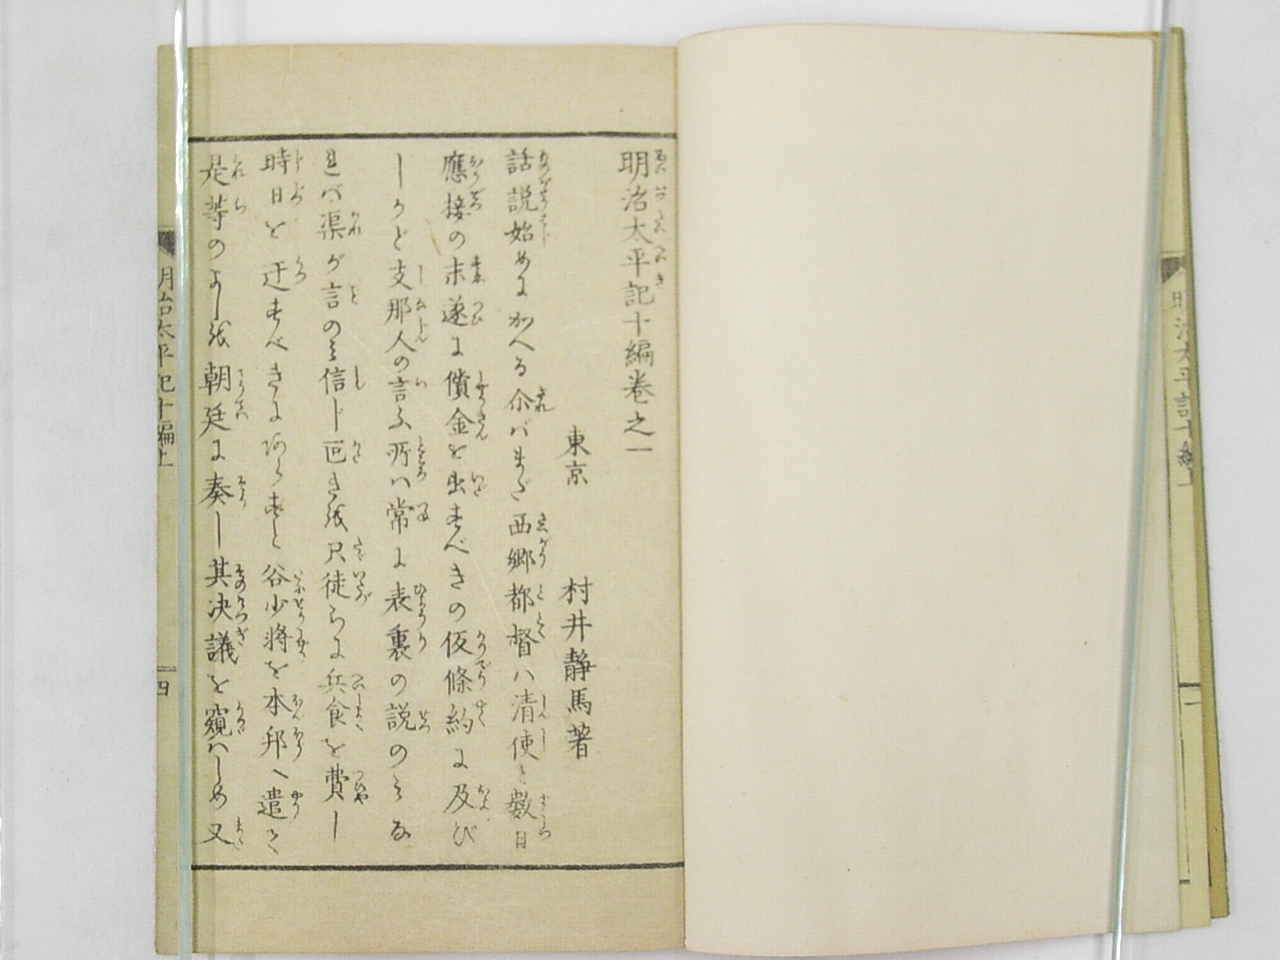 明治太平記十編巻之一
東京　村井静馬著
話説始めにかへる尒ばまだ西郷都督ハ清使と数日
應接の末遂に償金を出すべきの仮條約に及び
しかど支那人の言ふ所ハ常に表裏の説のミな
れバ渠が言のミ信じ叵きを只徒らに兵食を費し
時日を迂すべきにあらずと谷少将を本邦へ遣して
是等のよしを朝廷に奏し其決議を窺ハしめ又
明治太平記十編上
四
明治太平記十編上
一